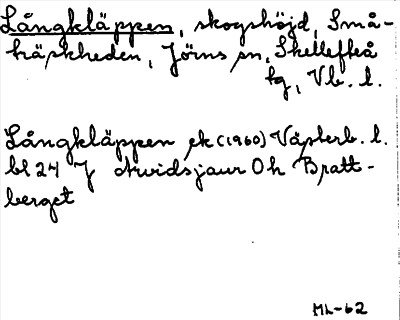 Långkläppen, skogshöjd, Små-
träskheden, Jörns sn, Skellefteå
tg, Vb. l.
Långkläppen ek (1960) Västerb. l.
bl 24 J Arvidsjaur Öh Bratt-
berget
ML-62